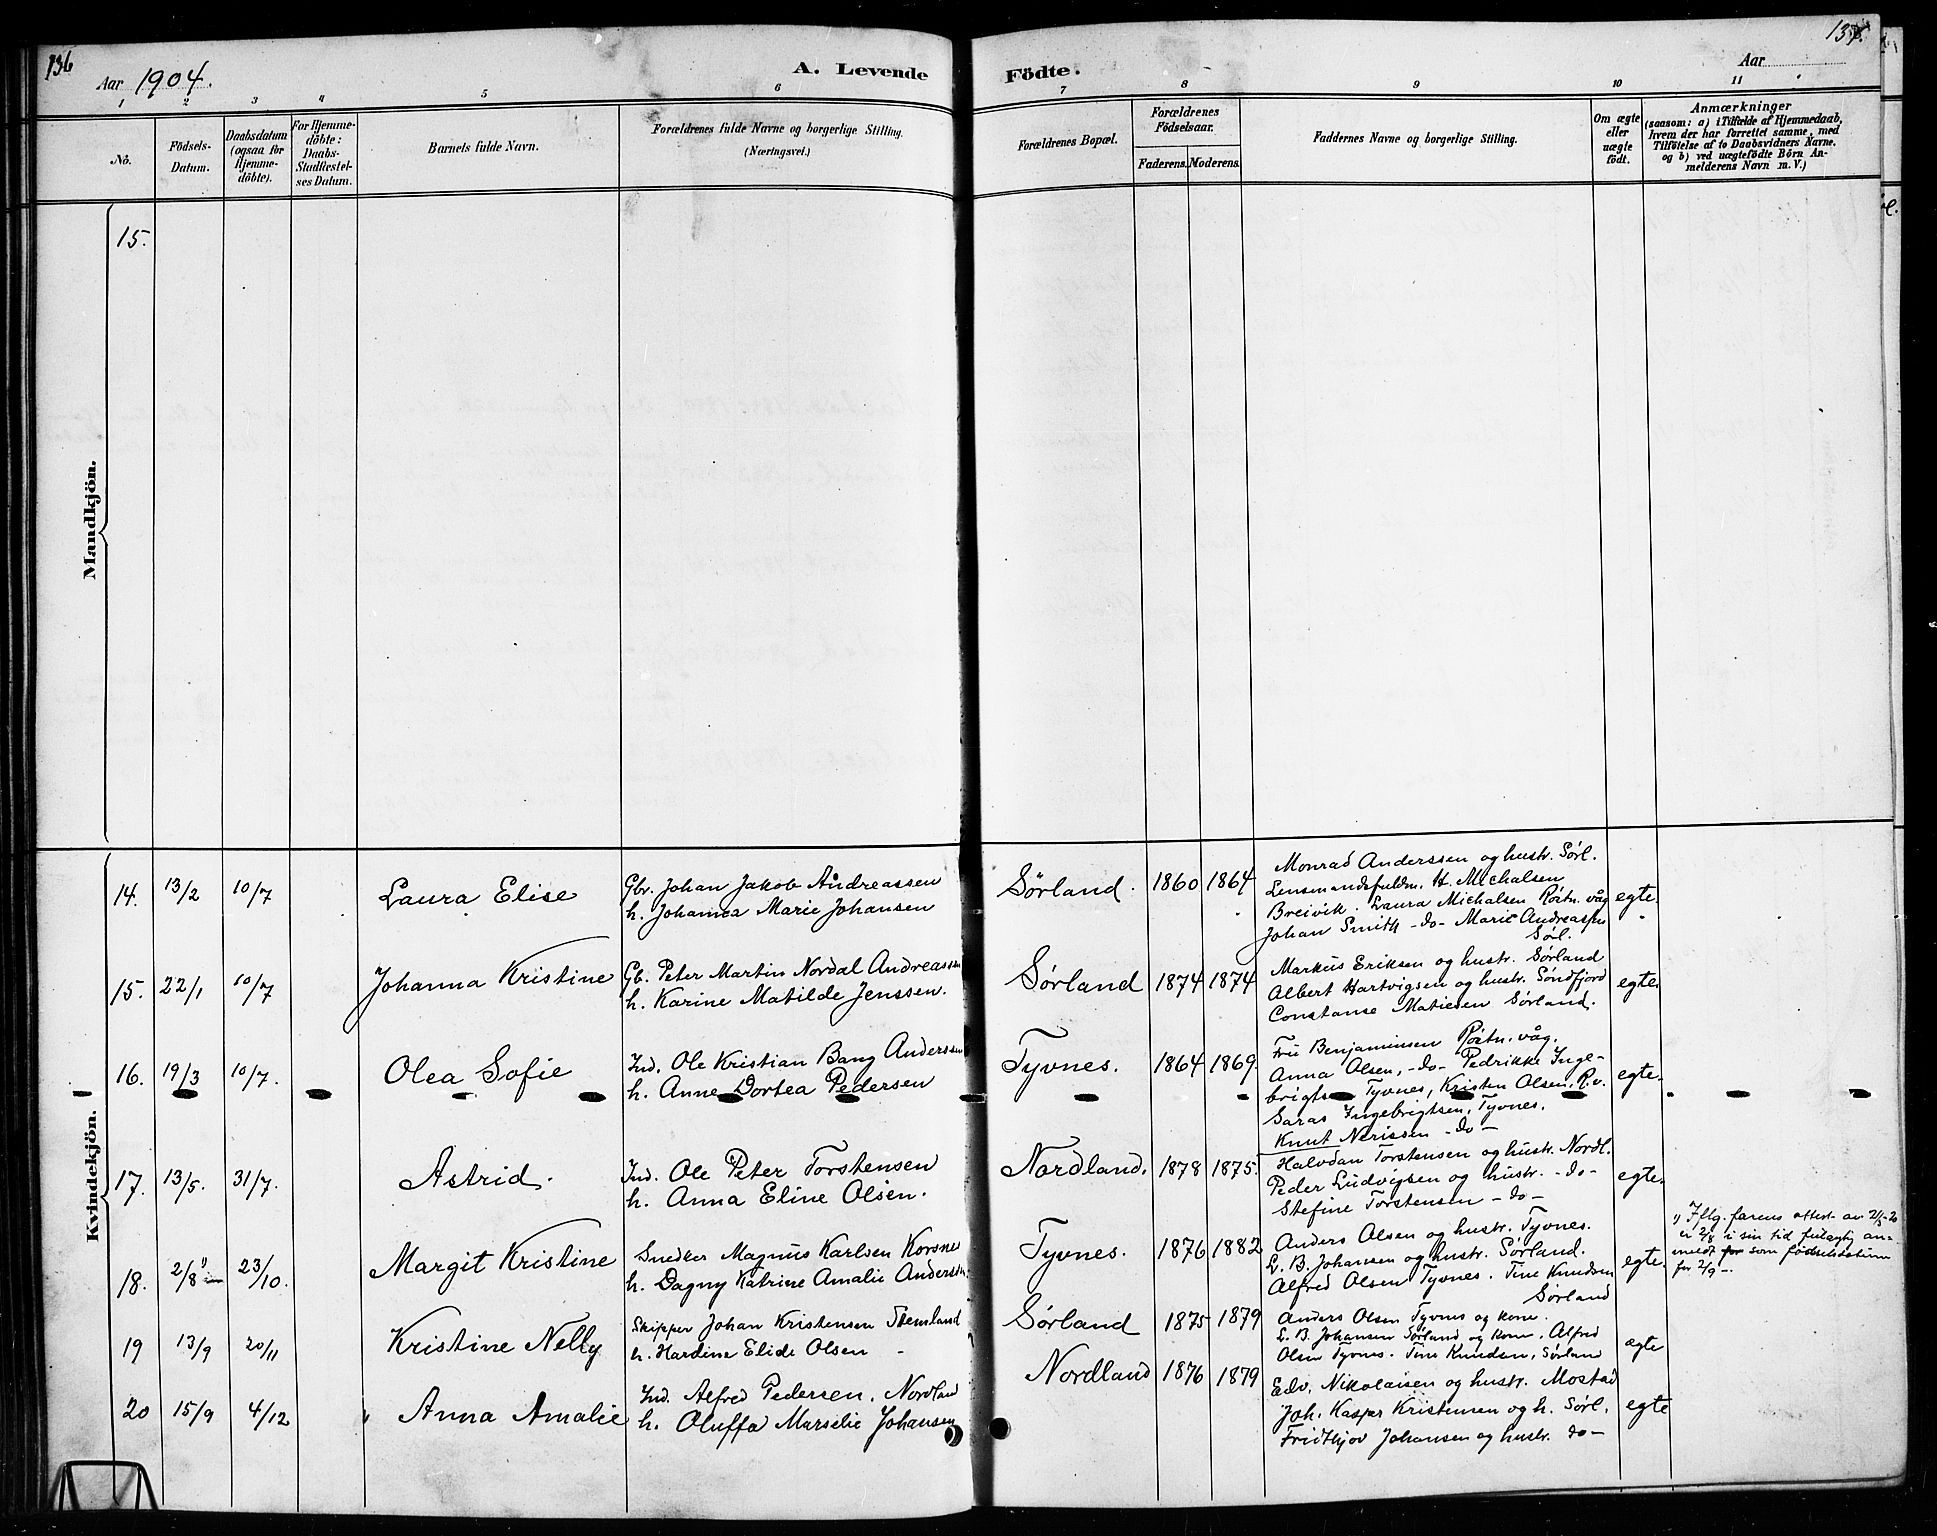 136
137.
Aar 1904.
A. Levende Födte.
Aar
1 2 3 4 5 6 7 8 9 10 11
No.
Födsels-
Datum.
Daabsdatum
(ogsaa för
Hjemme-
döbte).
For Hjemme-
döbte:
Daabs-
Stadfæstel-
ses Datum.
Barnets fulde Navn.
Forældrenes fulde Navne og borgerlige Stilling.
(Næringsvei.)
Forældrenes Bopæl.
Forældrenes
Födselsaar.
Faderens. Moderens.
Faddernes Navne og borgerlige Stilling.
Om ægte
eller
uægte
födt.
Anmærkninger
(saasom: a) i Tilfælde af Hjemmedaab,
hvem der har forrettet samme, med
Tilföielse af to Daabsvidners Navne,
og b) ved uægtefödte Börn An-
melderens Navn m. V.)
Mandkjön.
15.
Kvindekjön.
14. 13/2 10/7
Laura Elise
Gbr. Johan Jakob Andreassen
h. Johanna Marie Johansen
Sørland. 1860 1864
Monrad Anderssen og hustr. Sørl.
Lensmandsfuldm. H. Michalsen
Breivik. Laura Michalsen Røstn. våg
Johan Smith -do- Marie Andreassen
Sørl.
egte.
15. 22/1 10/7
Johanna Kristine
Gb. Peter Martin Nordal Andreassen
h. Karine Matilde Jenssen.
Sørland 1874 1874
Markus Eriksen og hustr. Sørland
Albert Hartvigsen og hustr. Søndfjord
Constanse Matisen Sørland.
egte.
16. 19/3 10/7.
Olea Sofie
Ind. Ole Kristian Bang Anderssen
h. Anne Dortea Pedersen
Tyvnes. 1864 1869.
Fru Benjaminsen Røstn. våg.
Anna Olsen, -do- Pedrikke Inge-
brigtsen Tyvnes, Kristen Olsen, R.v.
Saras Ingebrigtsen, Tyvnes.
Knut Nerissen -do-
egte.
17. 13/5. 31/7.
Astrid.
Ind. Ole Peter Torstensen
h. Anna Eline Olsen.
Nordland. 1878 1875.
Halvdan Torstensen og hustr. Nordl.
Peder Ludvigsen og hustr. -do-
Stefine Torstensen -do-
egte.
18. 2/8 1) 23/10.
Margit Kristine
Snedker Magnus Karlsen Korsnes
h. Dagny Katrine Amalie Anderssen
Tyvnes. 1876 1882
Anders Olsen og hustr. Tyvnes.
L. B. Johansen og hustr. Sørland.
Alfred Olsen Tyvnes. Tine Knudsen
Sørland
egte.
1) Iflg. farens attest av 21/5-20
er 2/8 i sin tid feilagtig an-
meldt for som fødselsdatum
for 2/9-.
19 13/9 20/11
Kristine Nelly
Skipper Johan Kristensen Stemland
h. Hardine Elide Olsen -
Sørland 1875 1879
Anders Olsen Tyvnes og kone.
L. B. Johansen Sørland og kone, Alfred
Olsen Tyvnes. Tine Knudsen, Sørland
egte
20 15/9 4/12
Anna Amalie
Ind. Alfred Pedersen, Nordland
h. Oluffa Marselie Johansen
Nordland 1876 1879
Edv. Nikolaisen og hustr. Mostad
Joh. Kaspar Kristensen og h. Sørl.
Fridthjov Johansen og hustr. do-
egte